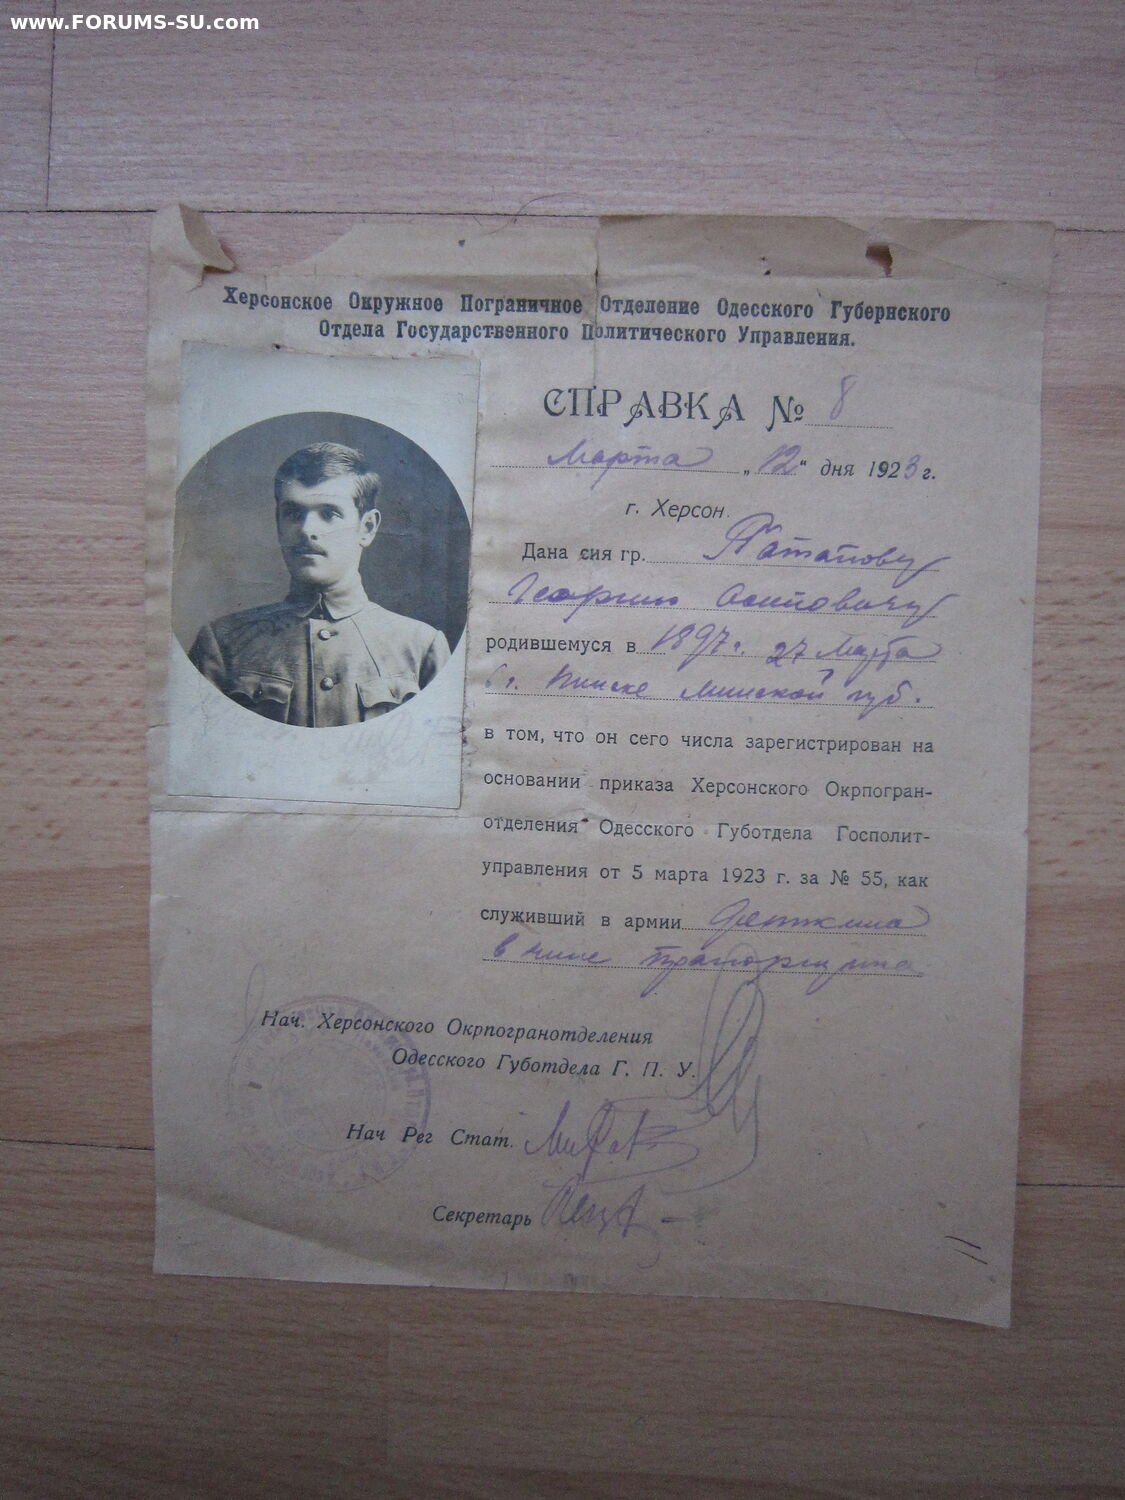 www.FORUMS-SU.com
Херсонское Окружное Пограничное Отделение Одесского Губернского
Отдела Государственного Политического Управления.
СПРАВКА № 8
Марта „12“ дня 1923 г.
г. Херсон.
Дана сия гр. Потапову
Георгию Осиповичу
родившемуся в 1897 г. 27 Марта
в г. Пинске Минской губ.
в том, что он сего числа зарегистрирован на
основании приказа Херсонского Окрпогран-
отделения Одесского Губотдела Госполит-
управления от 5 марта 1923 г. за № 55, как
служивший в армии Деникина
в чине прапорщика
Нач. Херсонского Окрпогранотделения
Одесского Губотдела Г. П. У.
Нач Рег Стат.
Секретарь